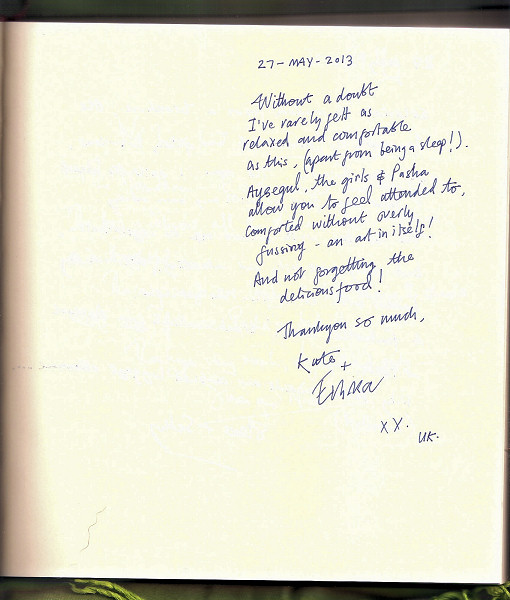 27-MAY-2013
Without a doubt
I've rarely felt as
relaxed and comfortable
as this, (apart from being asleep!).
Aysegul, the girls & Pasha
allow you to feel attended to,
comforted without overly
fussing - an art in itself!
And not forgetting the
delicious food!
Thankyou so much,
Kate +
Erika
xx.
UK.